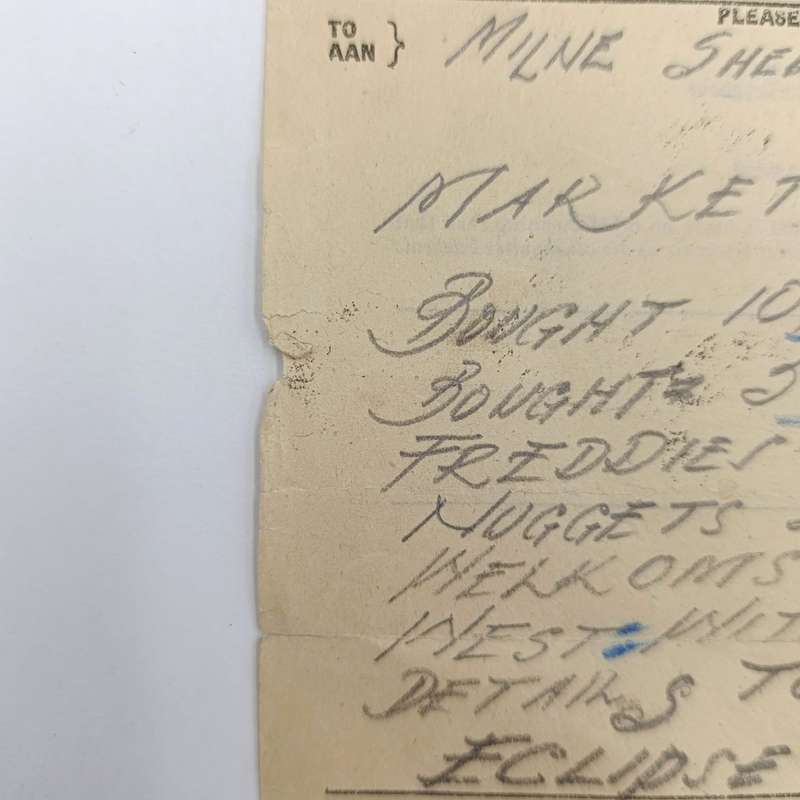 PLEASE
TO
AAN
MILNE
MARKET
BOUGHT 10
BOUGHT
FREDDIES
NUGGETS
WELKOMS
WEST WIT
DETAILS TO
ECLIPSE